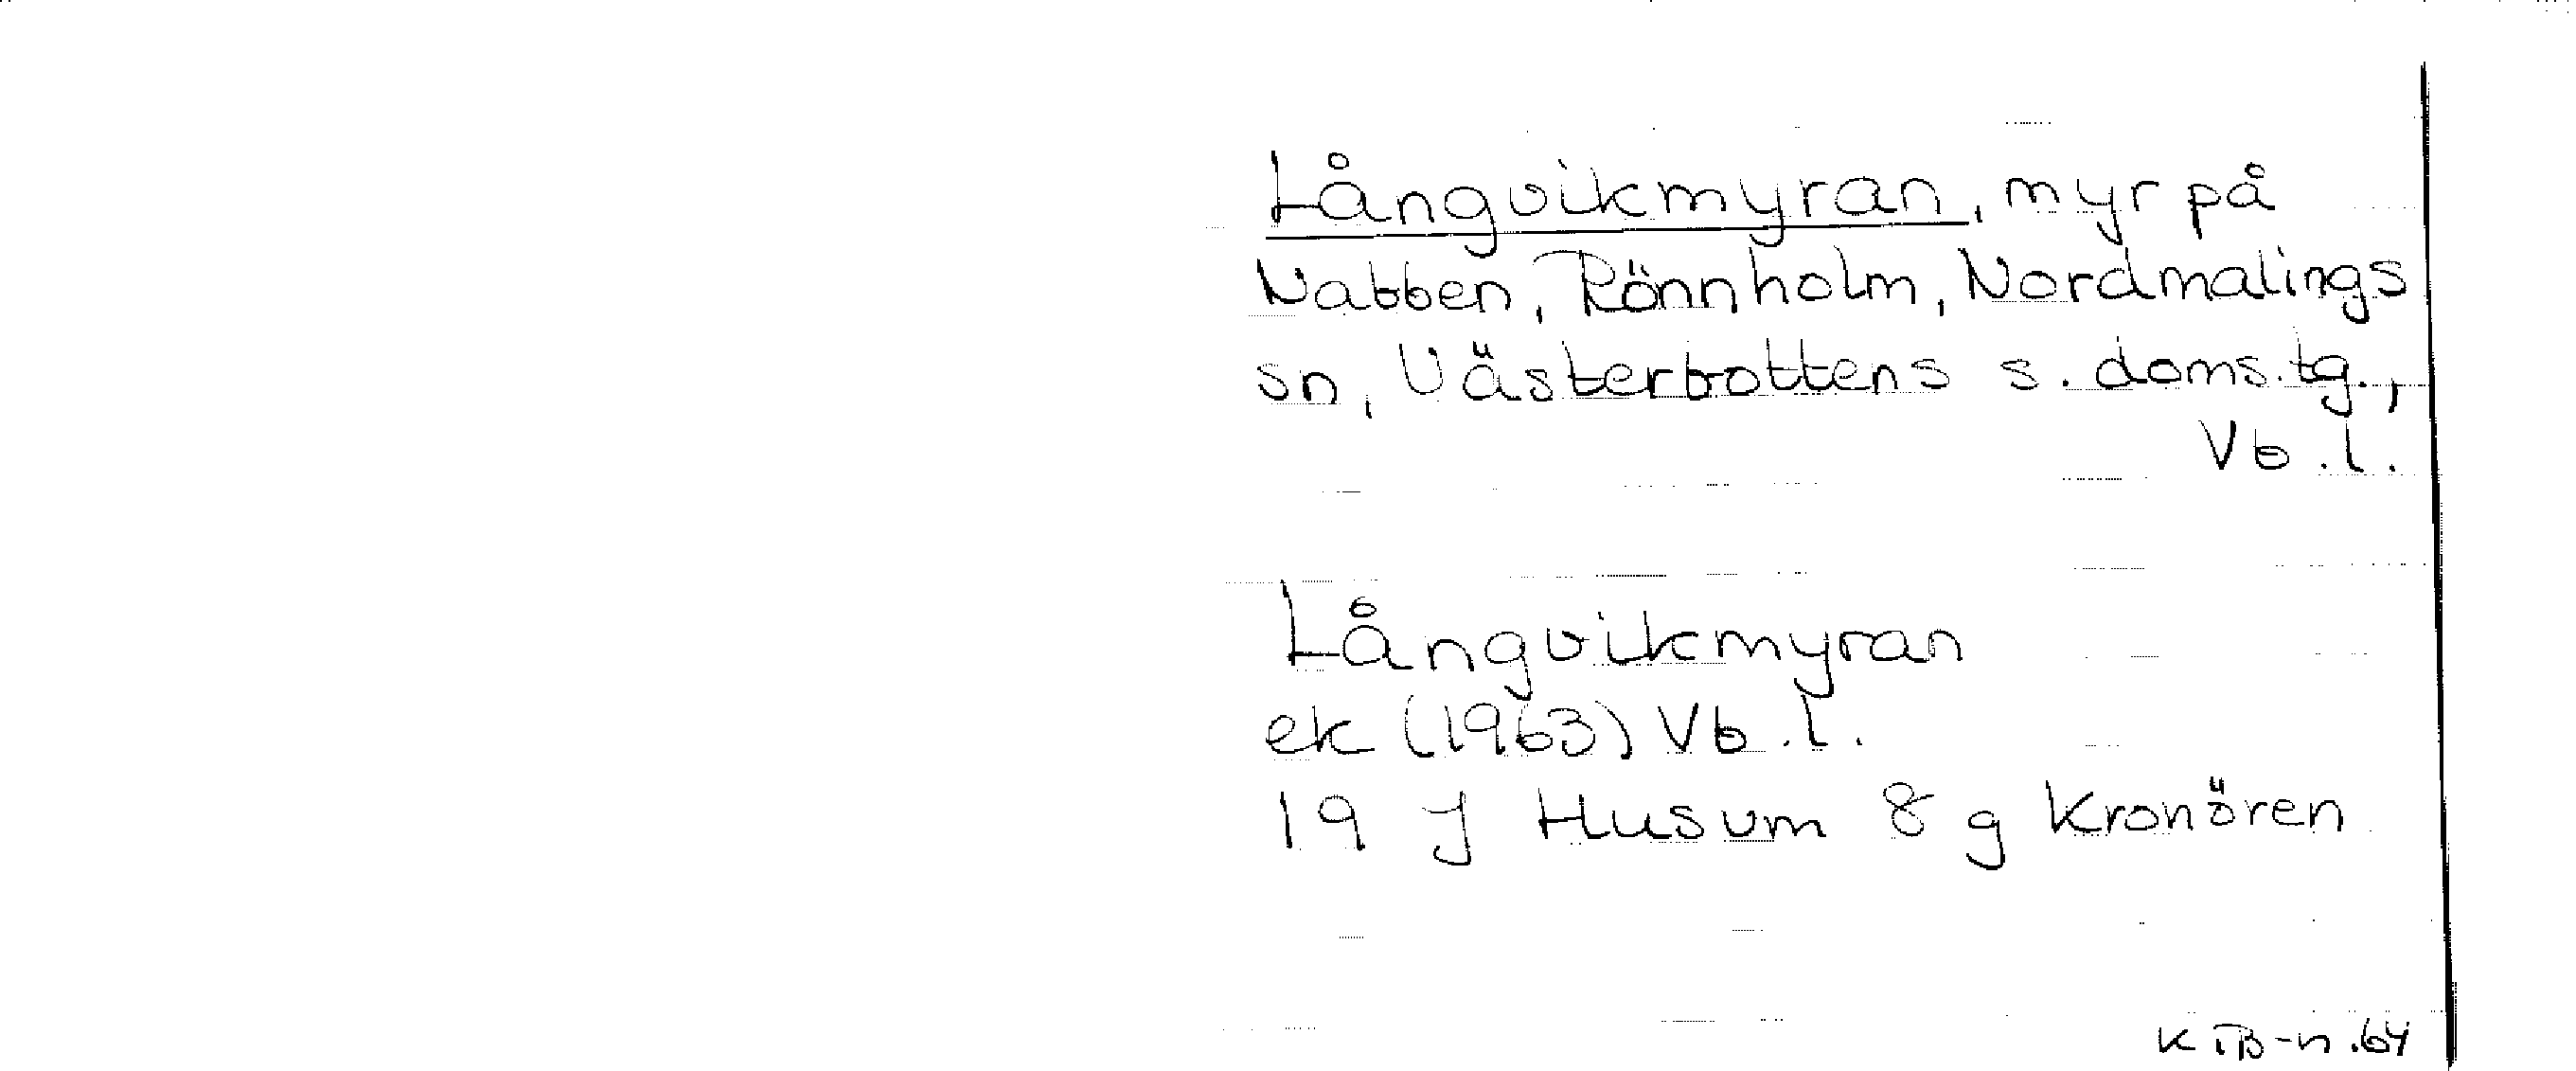 Långvikmyran, myr på
Nabben, Rönnholm, Nordmalings
sn, Västerbottens s. doms.tg.,
Vb.l.
Långvikmyran
ek (1963) Vb.l.
19 J Husum 8 g Kronören
K.B-n.64